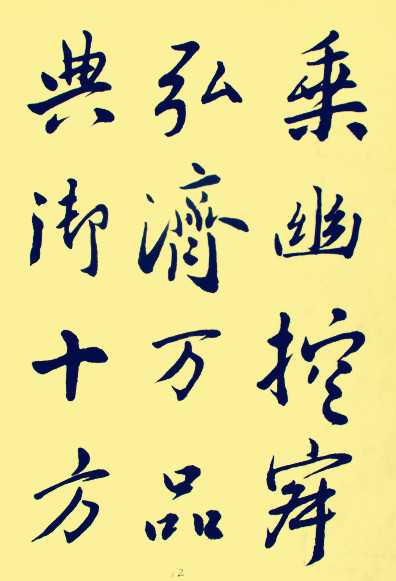 乘幽控寂
弘濟万品
典御十方